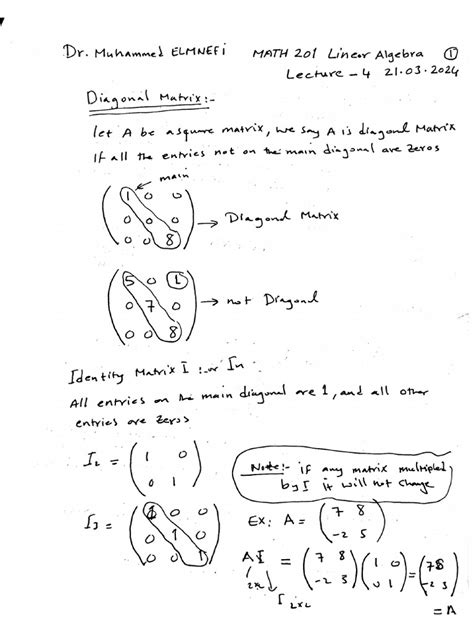 Dr. Muhammed ELMNEFi MATH 201 Linear Algebra ①
Lecture - 4 21.03.2024
Diagonal Matrix:-
let A be a square matrix, we say A is diagonal Matrix
if all the entries not on the main diagonal are zeros
main
1 0 0
0 0 0 → Diagonal Matrix
0 0 8
5 0 1
0 7 0 → not Diagonal
0 0 8
Identity Matrix I :or In
All entries on the main diagonal are 1, and all other
entries are zeros
I2 = ( 1 0
0 1 )
Note:- if any matrix multipled
by I it will not change
I3 = ( 1 0 0
0 1 0
0 0 1 )
Ex: A = ( 7 8
-2 5 )
AI = ( 7 8
-2 5 ) ( 1 0
0 1 ) = ( 7 8
-2 5 )
2x2 I 2x2
= A